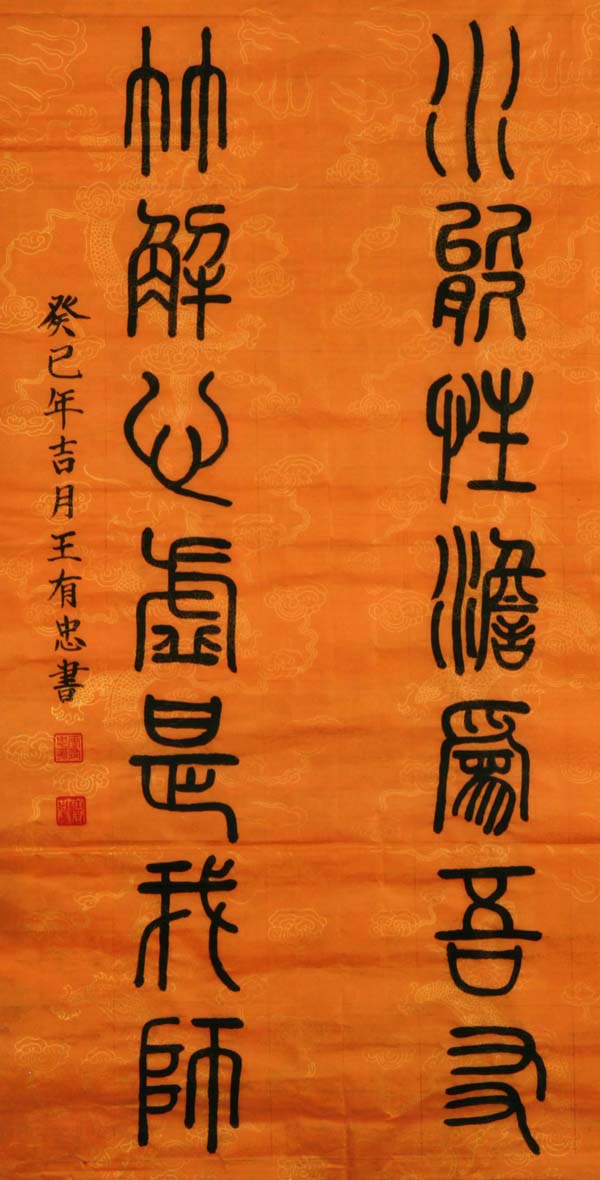 水能性澹為吾友
竹解心虛是我師
癸巳年吉月王有忠書